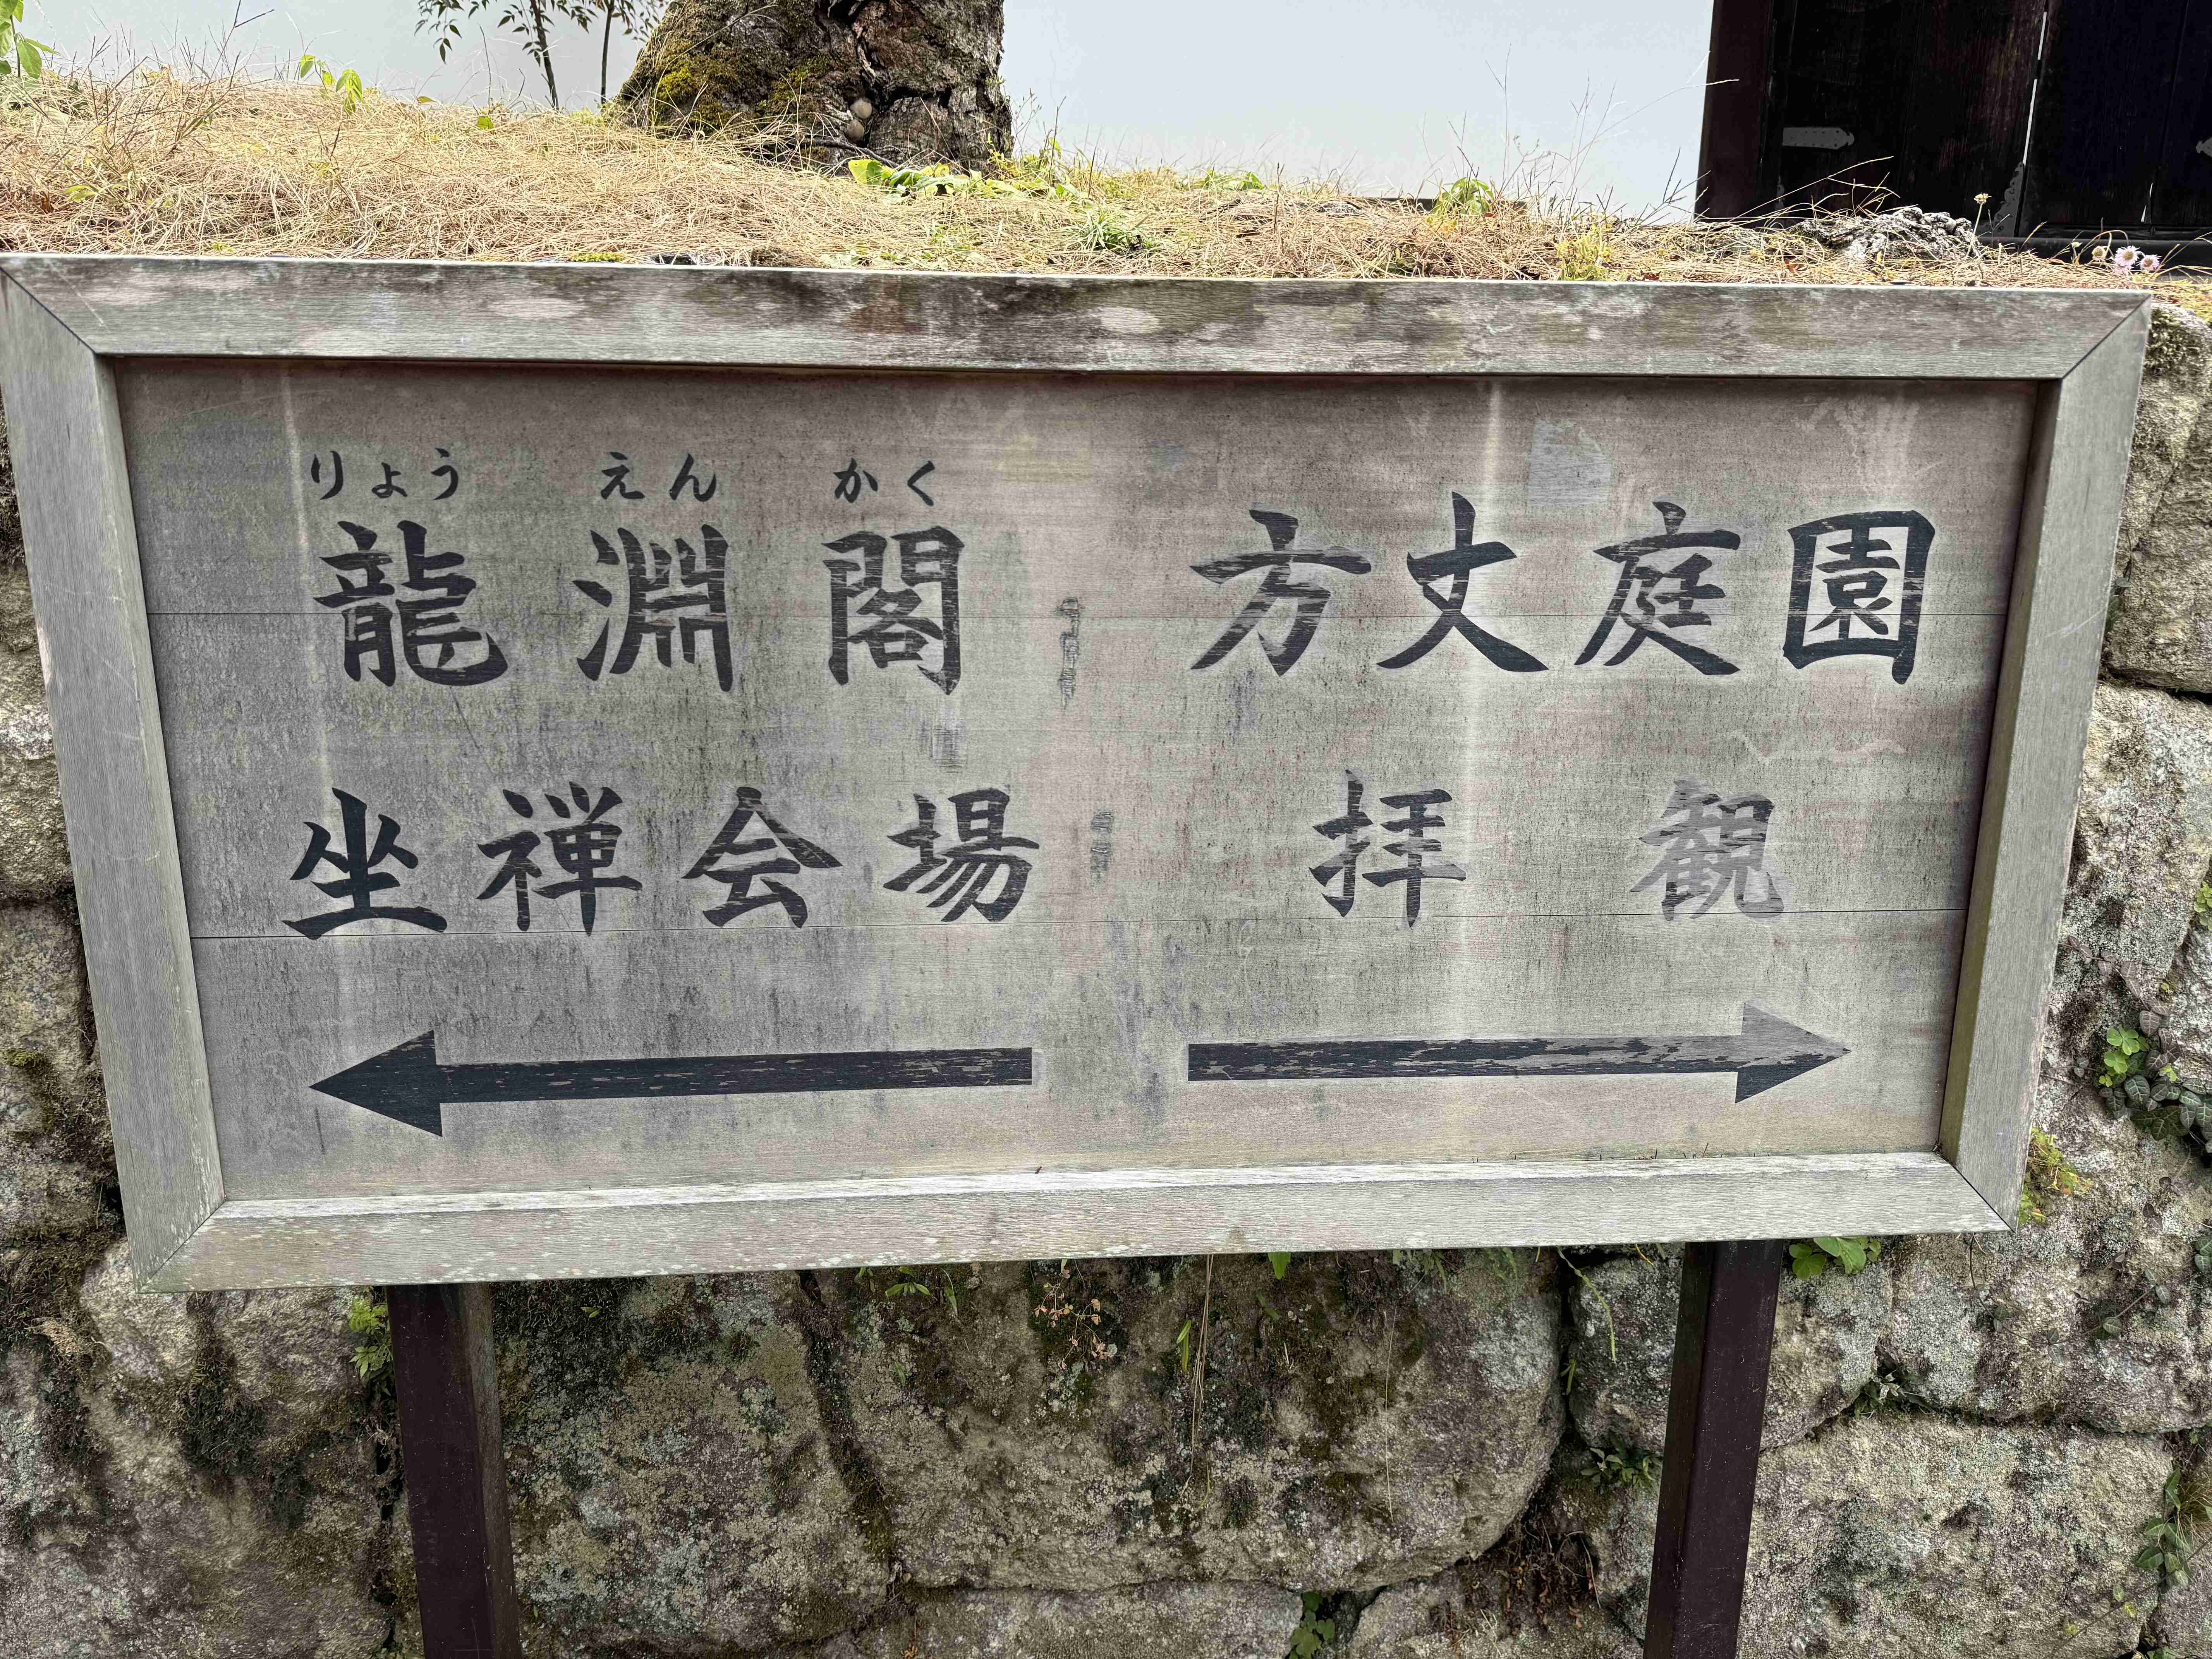 りょう えん かく
龍淵閣
坐禅会場
方丈庭園
拝観